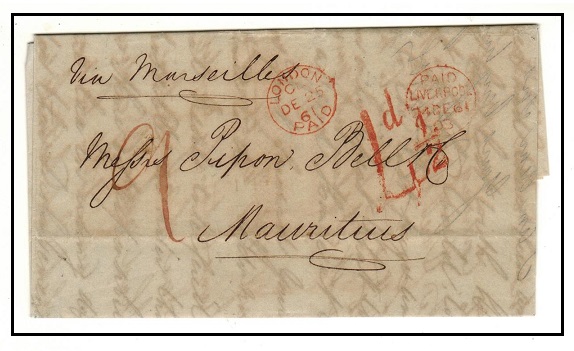 Via Marseilles
LONDON
C
DE 25
61
PAID
PAID
LIVERPOOL
DE 61
1d
1/2
9
Messrs Pipon Bell & Co
Mauritius